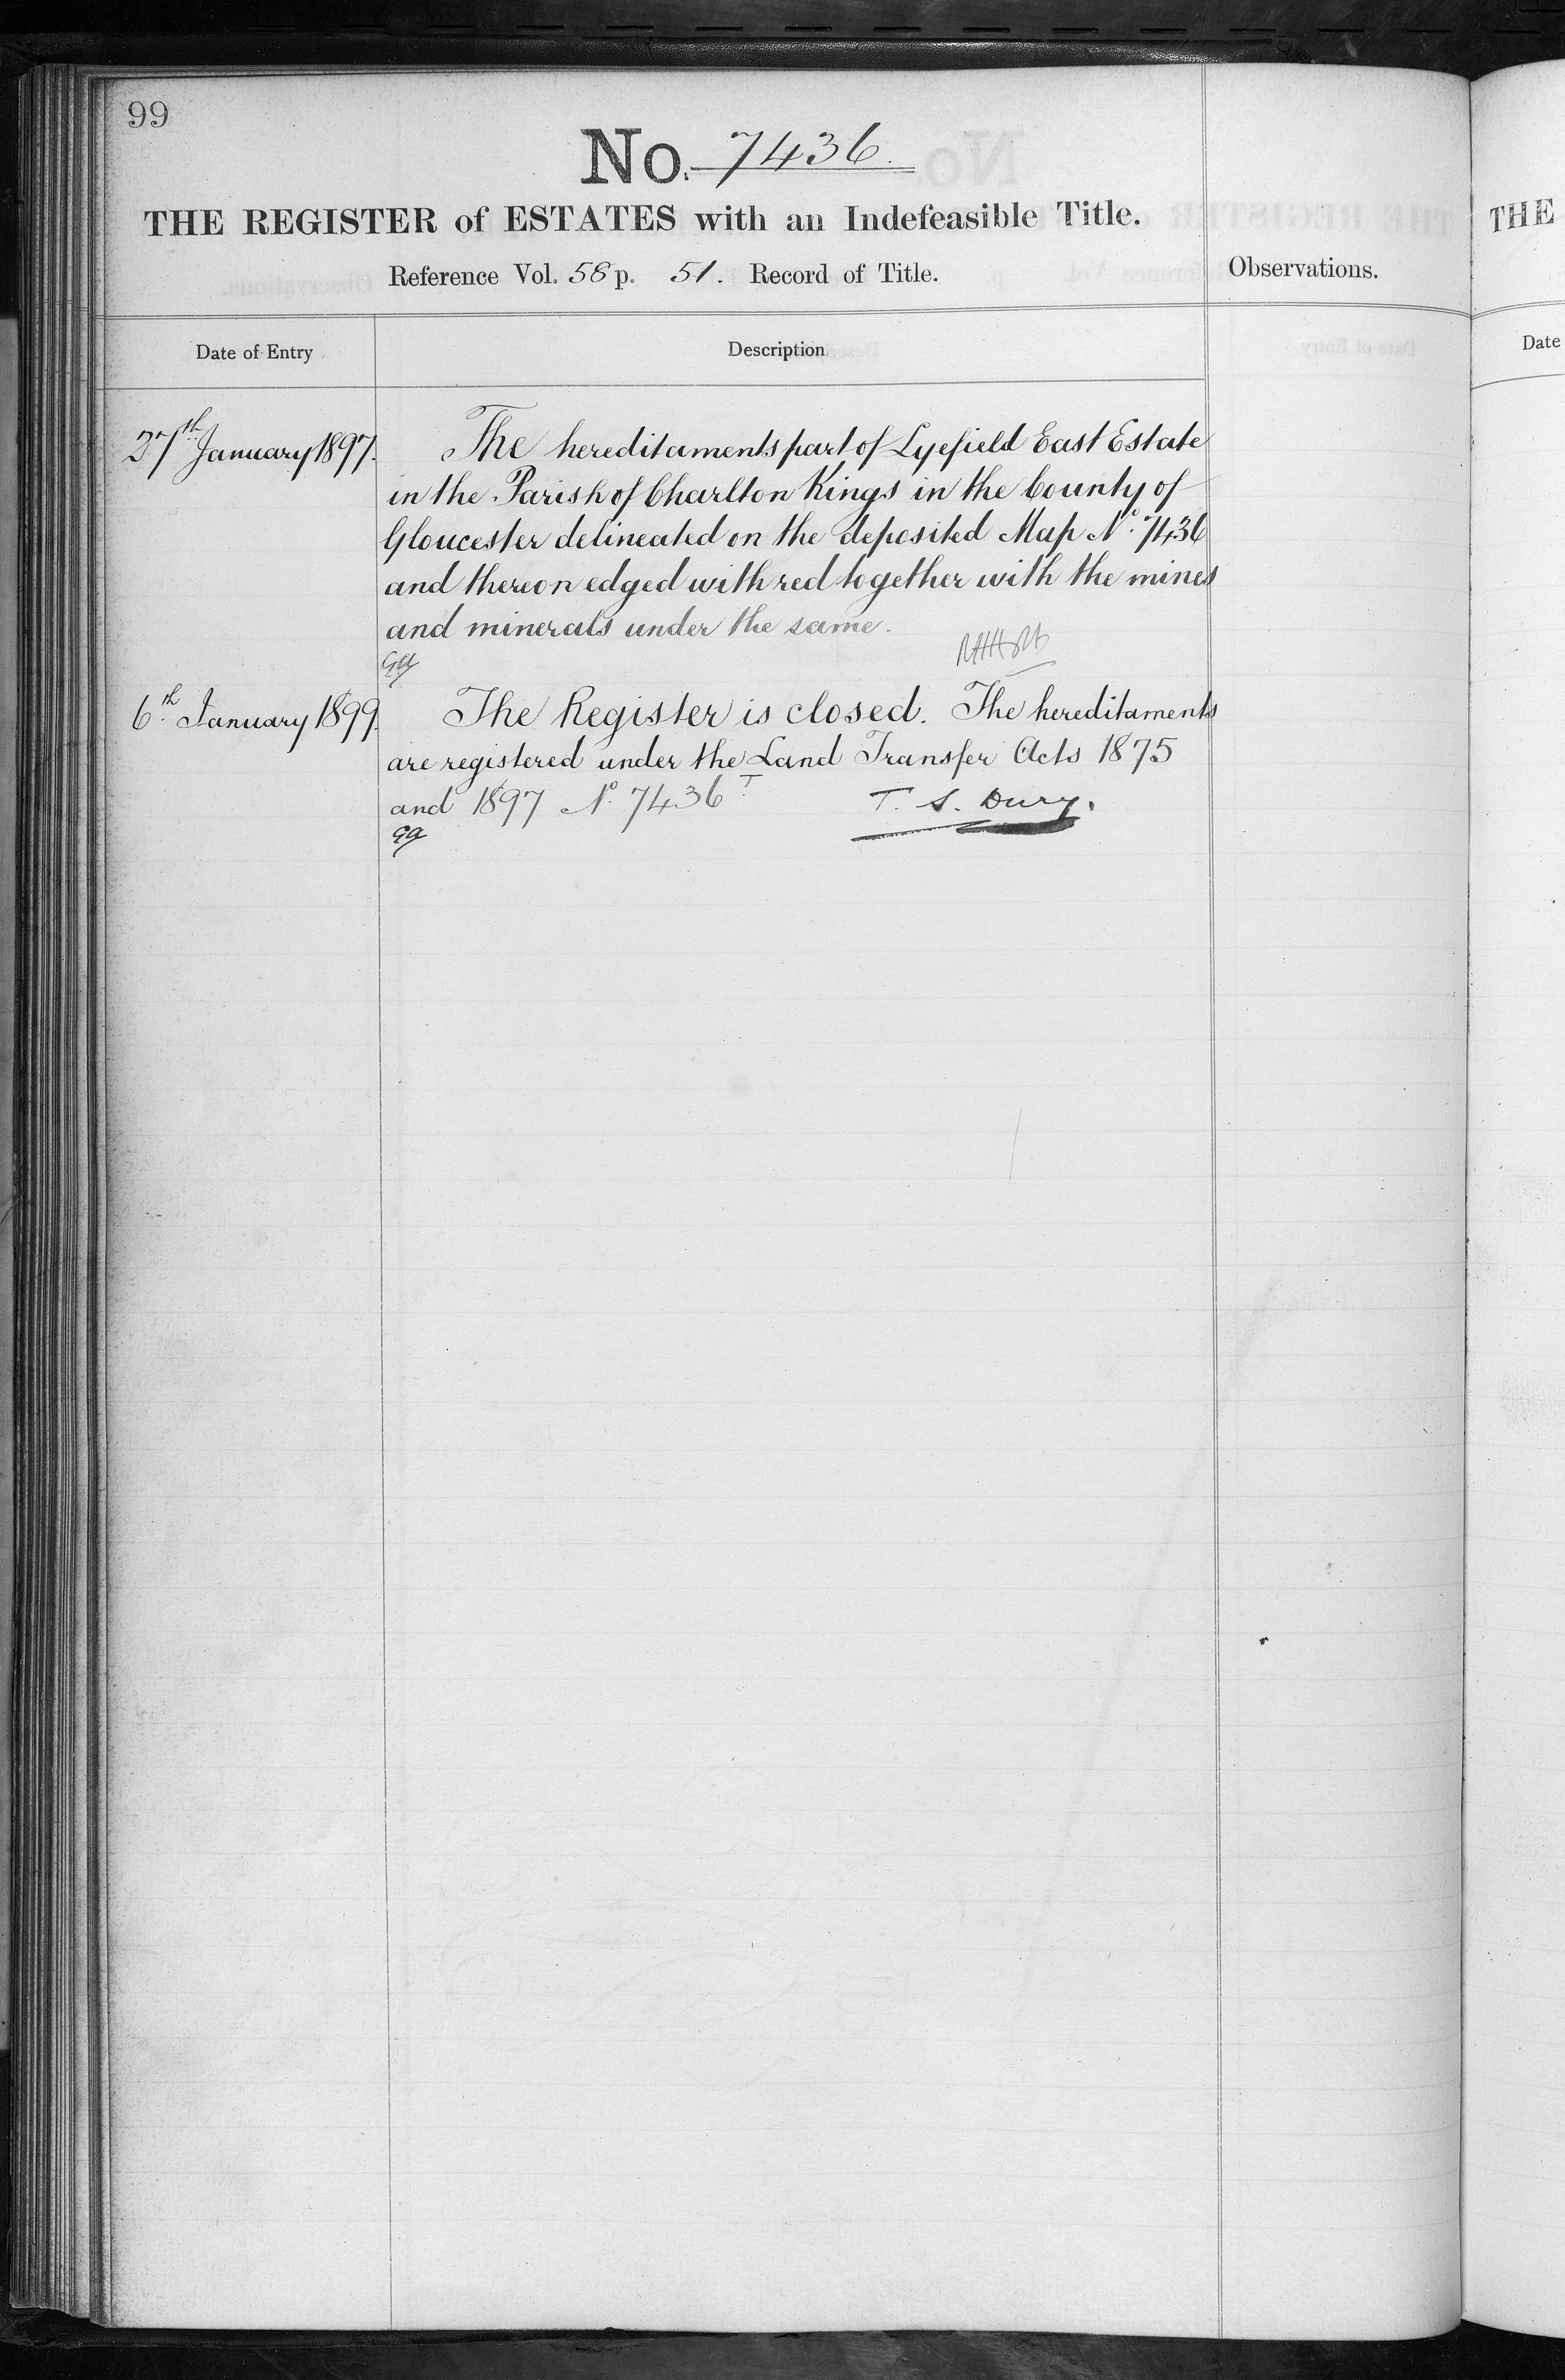 99
No. 7436.
THE REGISTER of ESTATES with an Indefeasible Title.
Reference Vol. 58 p. 51. Record of Title.
Observations.
Date of Entry
Description
27th January 1897.
The hereditaments part of Lyefield East Estate
in the Parish of Charlton Kings in the County of
Gloucester delineated on the deposited Map No. 7436
and thereon edged with red together with the mines
and minerals under the same.
6th January 1899.
The Register is closed. The hereditaments
are registered under the Land Transfer Acts 1875
and 1897 No. 7436 T
T. S. Dury.
THE
Date